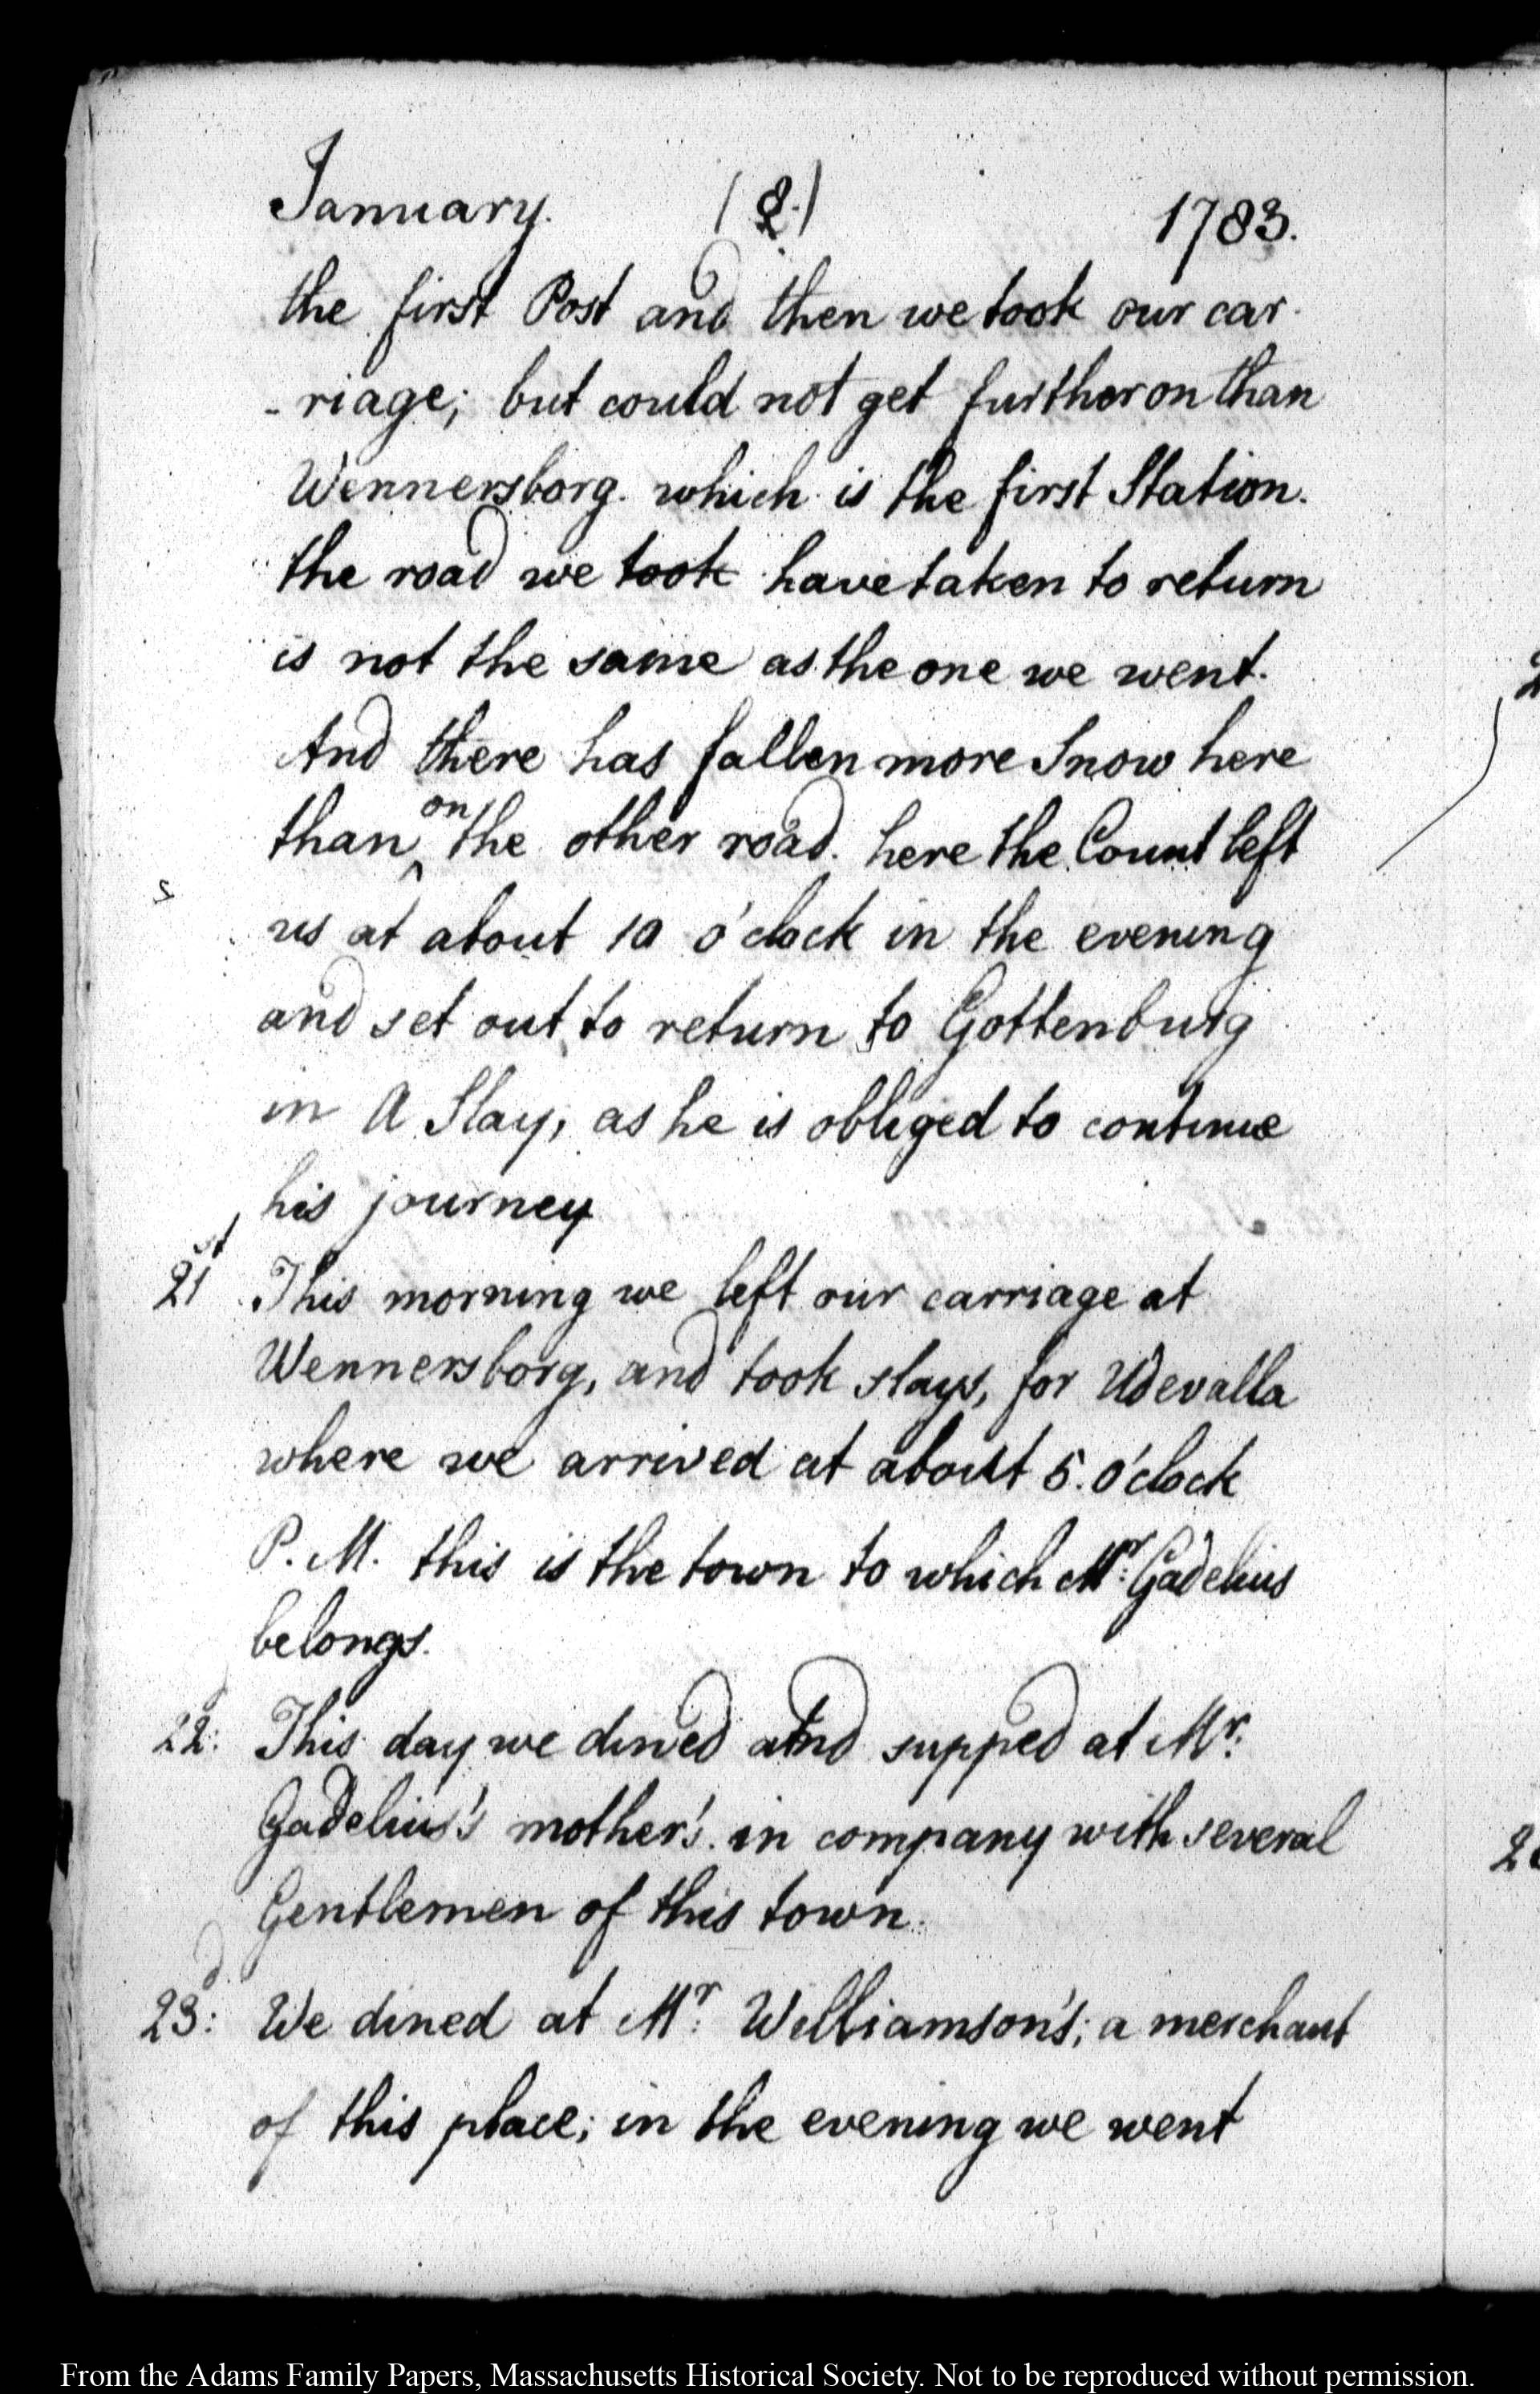 January. (2.) 1783.
the first Post and then we took our car-
-riage; but could not get further on than
Wennersborg. which is the first Station.
the road we took have taken to return
is not the same as the one we went.
And there has fallen more Snow here
than on the other road. here the Count left
us at about 10 o'clock in the evening
and set out to return to Gottenburg
in A Slay, as he is obliged to continue
his journey
21st This morning we left our carriage at
Wennersborg, and took slays, for Udevalla
where we arrived at about 5. o'clock
P. M. this is the town to which Mr: Gadelius
belongs.
22d: This day we dined and supped at Mr:
Gadelius's mother's. in company with several
Gentlemen of this town.
23d: We dined at Mr: Williamson's; a merchant
of this place; in the evening we went
From the Adams Family Papers, Massachusetts Historical Society. Not to be reproduced without permission.